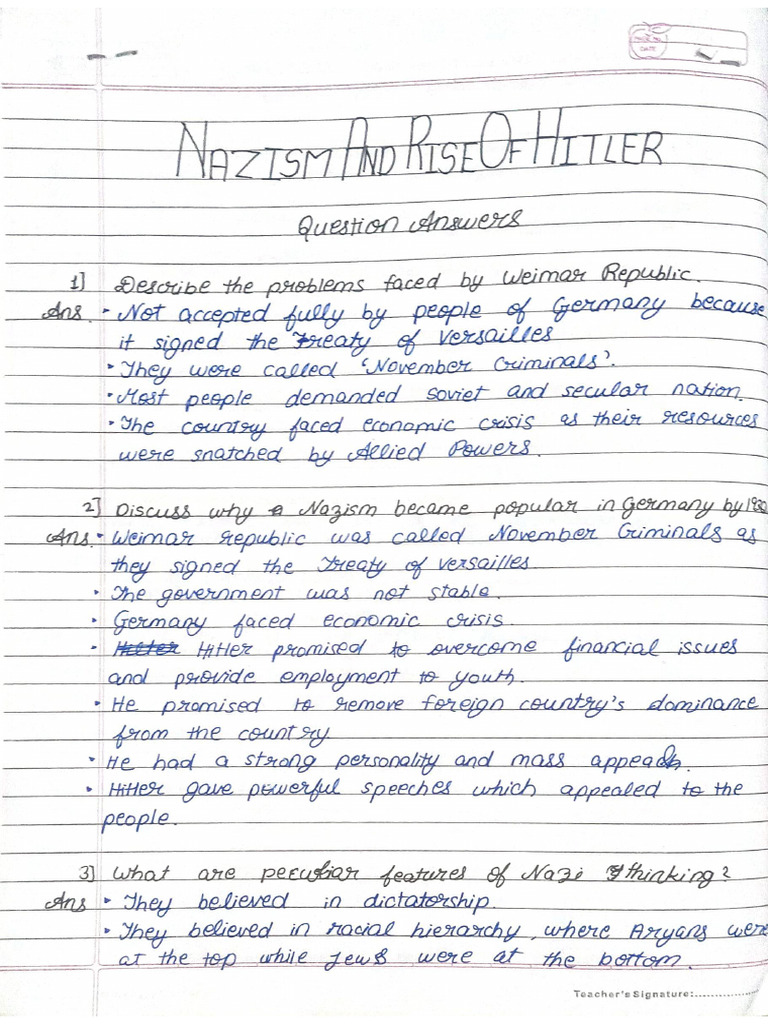 PAGE No.
DATE
NAZISM AND RISE OF HITLER
Question Answers
1] Describe the problems faced by Weimar Republic.
Ans. • Not accepted fully by people of Germany because
it signed the Treaty of Versailles
• They were called 'November Criminals'.
• Most people demanded soviet and secular nation.
• The country faced economic crisis as their resources
were snatched by Allied Powers.
2] Discuss why Nazism became popular in Germany by 1930
Ans. • Weimar republic was called November Criminals as
they signed the Treaty of Versailles.
• The government was not stable.
• Germany faced economic crisis.
• Hitler promised to overcome financial issues
and provide employment to youth.
• He promised to remove foreign country's dominance
from the country
• He had a strong personality and mass appeal.
• Hitler gave powerful speeches which appealed to the
people.
3] What are peculiar features of Nazi thinking?
Ans • They believed in dictatorship.
• They believed in racial hierarchy, where Aryans were
at the top while Jews were at the bottom.
Teacher's Signature:................